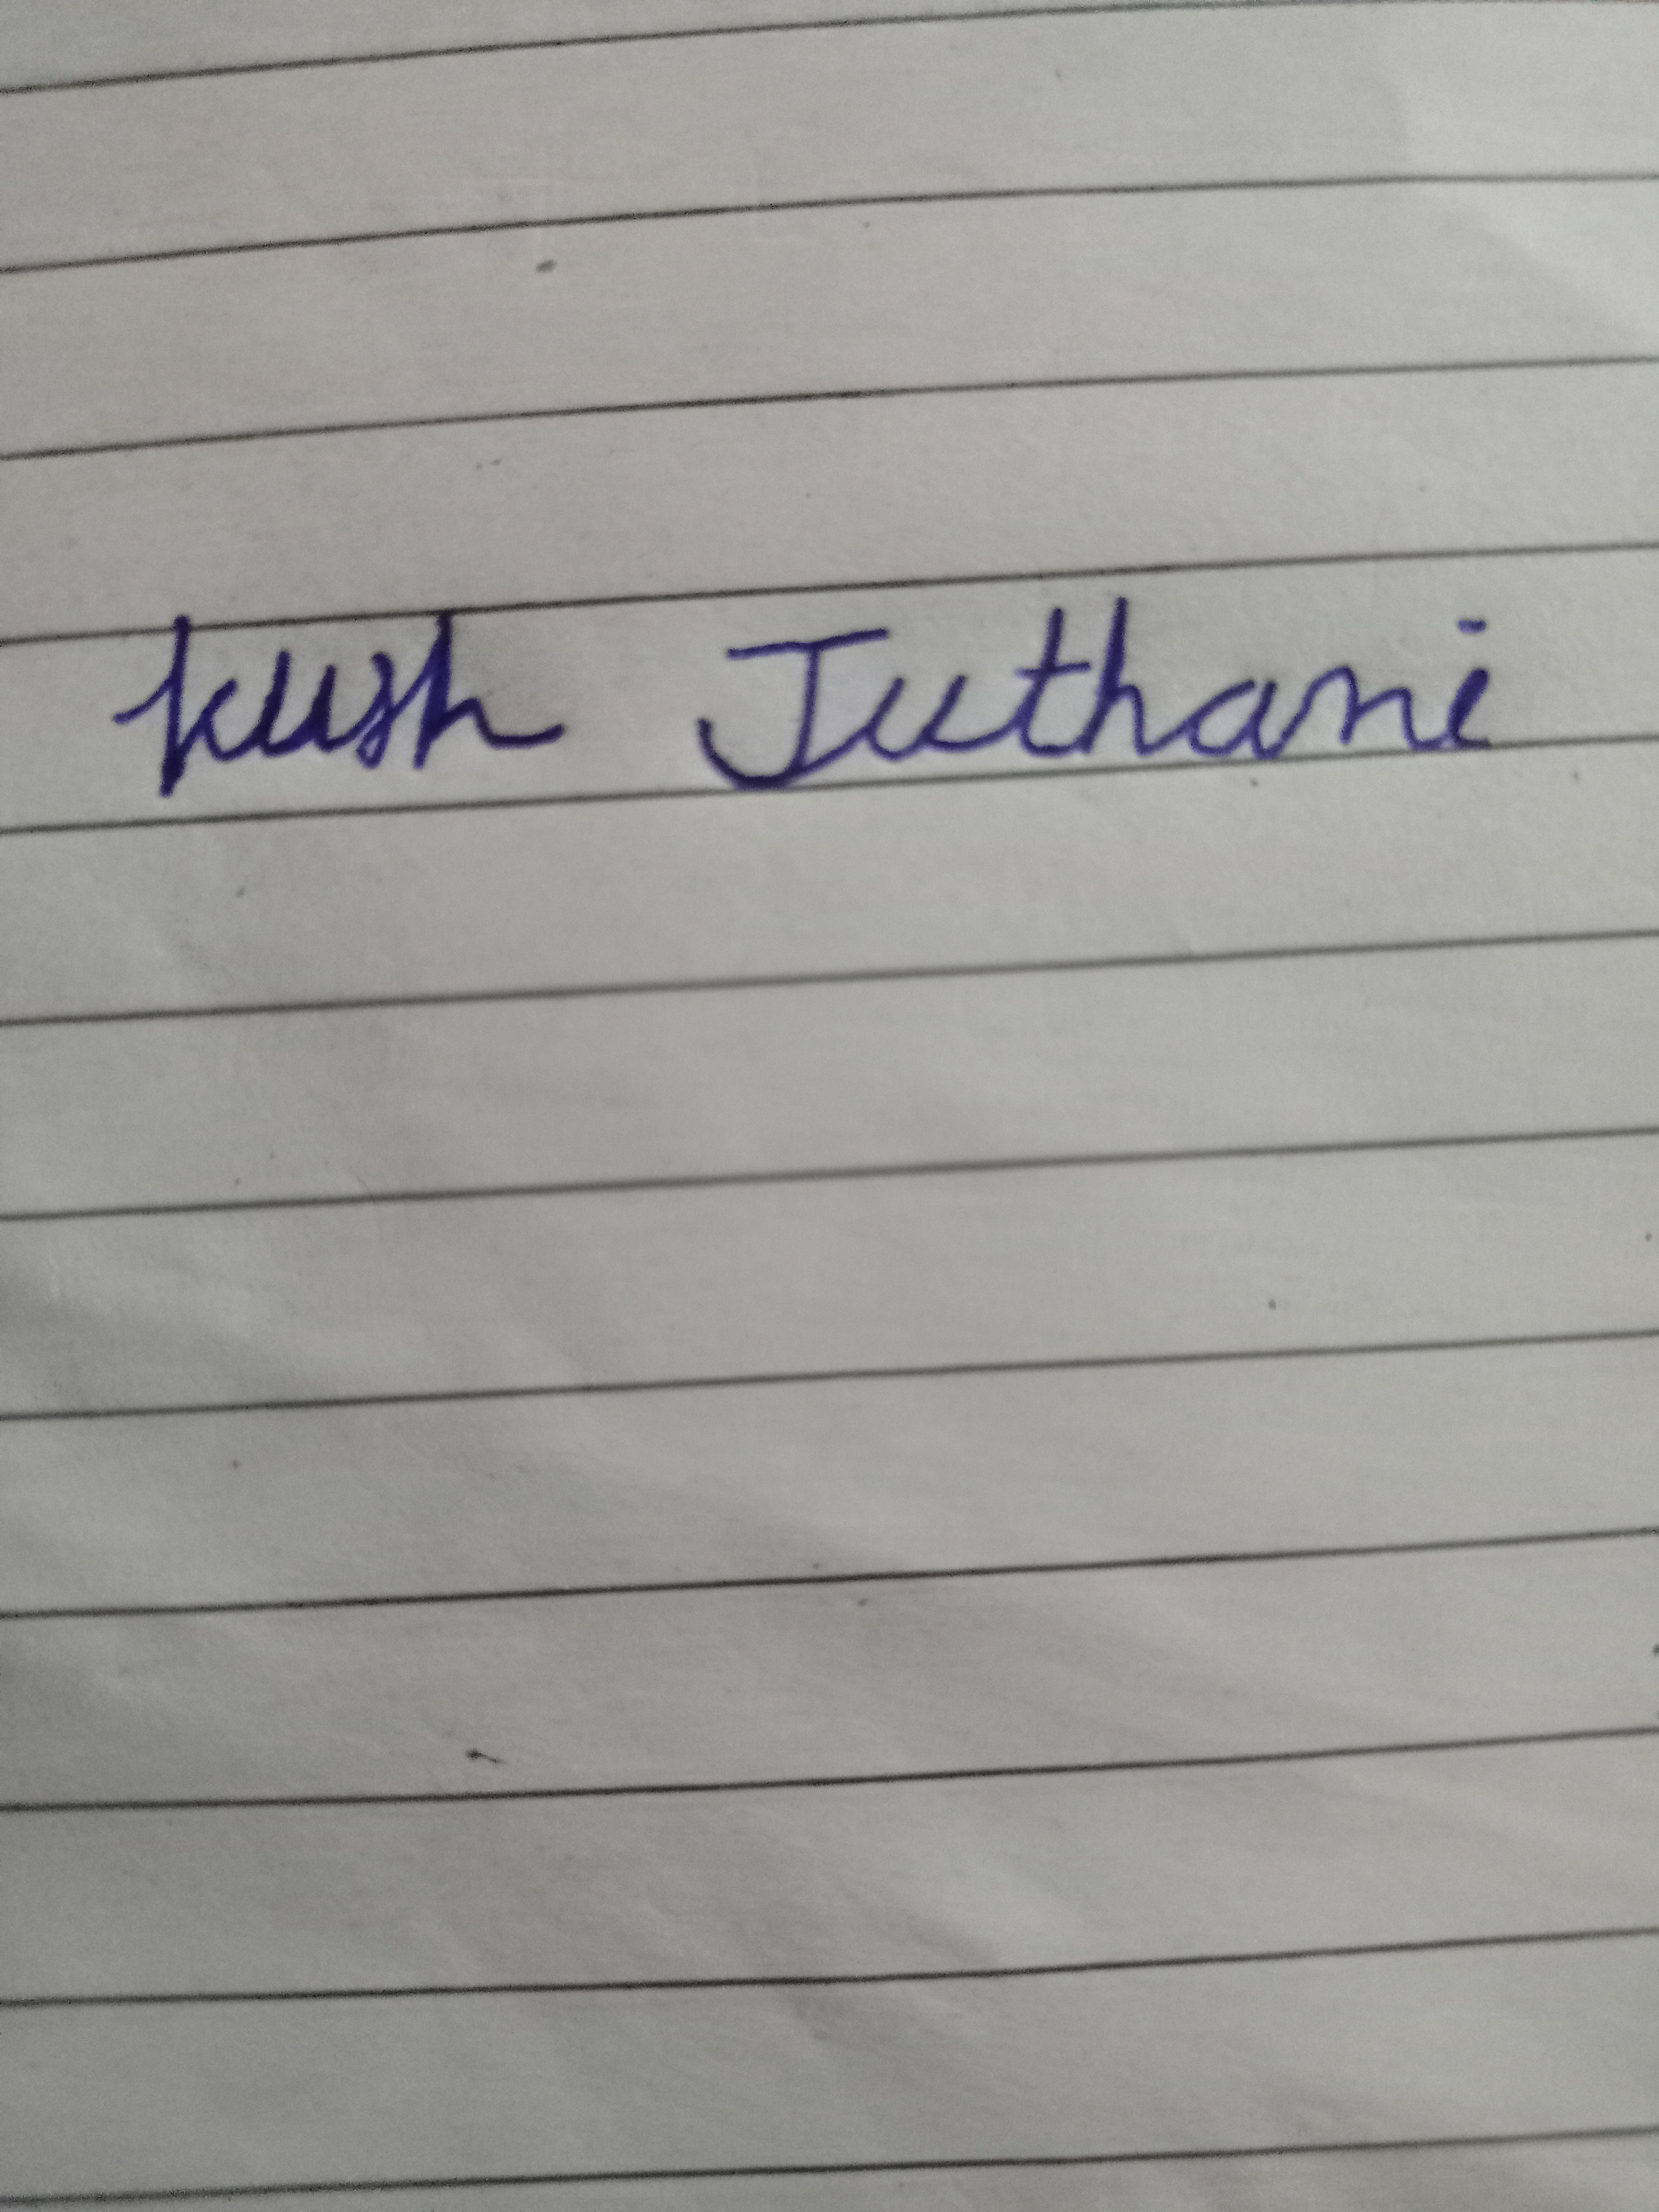 kush Juthani